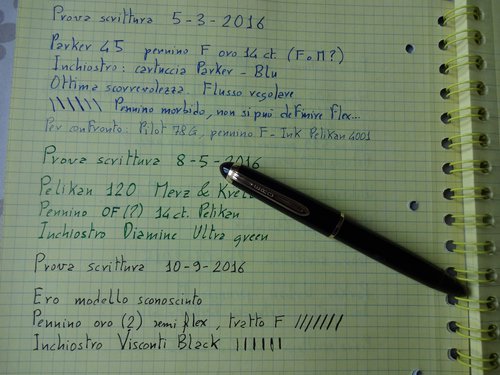 Prova scrittura 5-3-2016
Parker 45 pennino F oro 14 ct. (F o M?)
Inchiostro: cartuccia Parker - Blu
Ottima scorrevolezza. Flusso regolare
Pennino morbido, non si può definire flex...
Per confronto: Pilot 78G, pennino F - Ink Pelikan 4001
Prova scrittura 8-5-2016
Pelikan 120 Merz & Krell
Pennino OF(?) 14 ct. Pelikan
Inchiostro Diamine Ultra green
Prova scrittura 10-9-2016
Ero modello sconosciuto
Pennino oro (?) semi flex, tratto F
Inchiostro Visconti Black